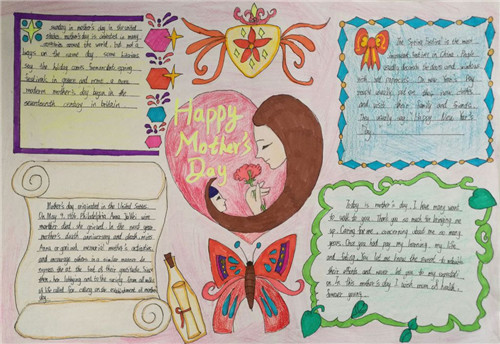 sunday in mother's day in the united
states. mother's day is celebrated in many
countries around the world, but not
always on the same day. some historians
say the holiday comes from ancient spring
festivals in greece and rome.
modern mother's day began in the
seventeenth century in britain
Happy
Mother's
Day
The Spring Festival is the most
important festival in China. People
usually decorate the doors and windows
with red papercuts. On new Year's Day
people usually put on their new clothes
and visit their family and friends.
They usually say: "Happy New Year's
Day
Mother's day originated in the United States.
On May 9, 1906 Philadelphia Anna
mother died, she grieved. In the next year
mother's death anniversary
Anna organized memorial mother's activities,
and encourage others in a similar manner to
express the
life called for, calling on the establishment of mother
day.
Today is mother's day, I have many want
to said to you. Thank you so much for bringing me
up. Caring for me, concerning about me so many
years. Once you had pay my learning, my life
and
their efforts and never let you to my
on to this mother's day I wish mom of health
forever young